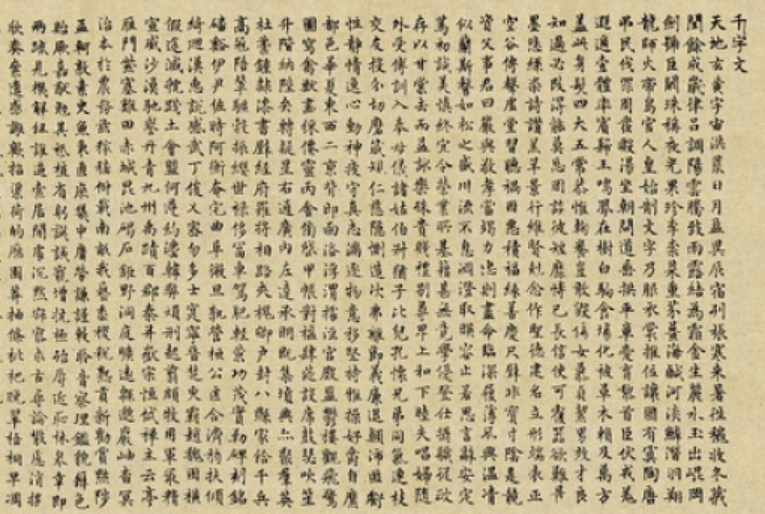 千字文
天地玄黃宇宙洪荒日月盈昃辰宿列張寒来暑往秋收冬藏
閏餘成歲律呂調陽雲騰致雨露結為霜金生麗水玉出崐岡
劍號巨闕珠稱夜光果珍李柰菜重芥薑海鹹河淡鱗潛羽翔
龍師火帝鳥官人皇始制文字乃服衣裳推位讓國有虞陶唐
弔民伐罪周發殷湯坐朝問道垂拱平章愛育黎首臣伏戎羌
遐邇壹體率賓歸王鳴鳳在樹白駒食場化被草木賴及萬方
蓋此身髮四大五常恭惟鞠養豈敢毀傷女慕貞絜男效才良
知過必改得能莫忘罔談彼短靡恃己長信使可覆器欲難量
墨悲絲染詩讚羔羊景行維賢剋念作聖德建名立形端表正
空谷傳聲虛堂習聽禍因惡積福緣善慶尺璧非寶寸陰是競
資父事君曰嚴與敬孝當竭力忠則盡命臨深履薄夙興溫凊
似蘭斯馨如松之盛川流不息淵澄取暎容止若思言辭安定
篤初誠美慎終宜令榮業所基籍甚無竟學優登仕攝職從政
存以甘棠去而益詠樂殊貴賤禮別尊卑上和下睦夫唱婦隨
外受傅訓入奉母儀諸姑伯叔猶子比兒孔懷兄弟同氣連枝
交友投分切磨箴規仁慈隱惻造次弗離節義廉退顛沛匪虧
性靜情逸心動神疲守真志滿逐物意移堅持雅操好爵自縻
都邑華夏東西二京背邙面洛浮渭據涇宮殿盤鬱樓觀飛驚
圖寫禽獸畫綵僊靈丙舍傍啓甲帳對楹肆筵設席鼓瑟吹笙
升階納陛弁轉疑星右通廣內左達承明既集墳典亦聚羣英
杜稾鍾隸漆書壁經府羅將相路俠槐卿戶封八縣家給千兵
高冠陪輦驅轂振纓世祿侈富車駕肥輕策功茂實勒碑刻銘
磻谿伊尹佐時阿衡奄宅曲阜微旦孰營桓公匡合濟弱扶傾
綺迴漢惠說感武丁俊乂密勿多士寔寧晉楚更霸趙魏困橫
假途滅虢踐土會盟何遵約法韓弊煩刑起翦頗牧用軍最精
宣威沙漠馳譽丹青九州禹跡百郡秦并嶽宗恒岱禪主云亭
雁門紫塞雞田赤城昆池碣石鉅野洞庭曠遠緜邈巖岫杳冥
治本於農務茲稼穡俶載南畝我藝黍稷稅熟貢新勸賞黜陟
孟軻敦素史魚秉直庶幾中庸勞謙謹敕聆音察理鑑貌辨色
貽厥嘉猷勉其祗植省躬譏誡寵增抗極殆辱近恥林皋幸即
兩疏見機解組誰逼索居閑處沉默寂寥求古尋論散慮逍遙
欣奏累遣慼謝歡招渠荷的歷園莽抽條枇杷晚翠梧桐早凋